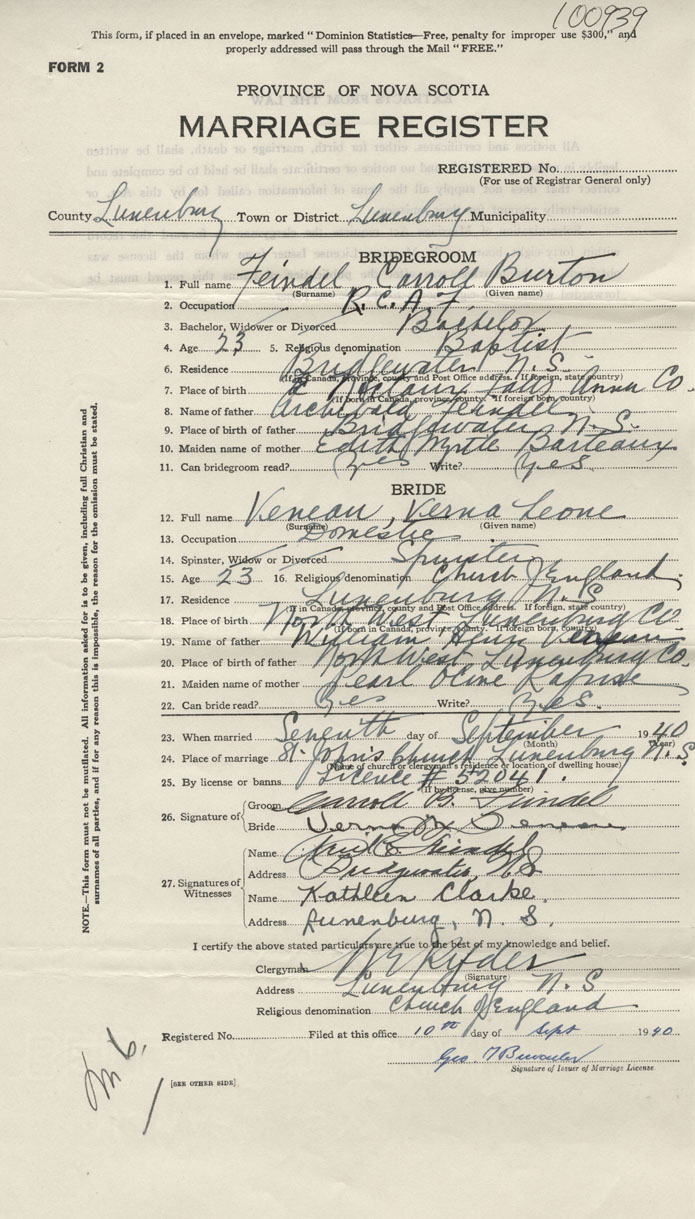 100939
This form, if placed in an envelope, marked "Dominion Statistics—Free, penalty for improper use $300," and
properly addressed will pass through the Mail "FREE."
FORM 2
PROVINCE OF NOVA SCOTIA
MARRIAGE REGISTER
REGISTERED No.
(For use of Registrar General only)
County Lunenburg Town or District Lunenburg Municipality
BRIDEGROOM
1. Full name Feindel, Carroll Burton
(Surname) (Given name)
2. Occupation R.C.A.F.
3. Bachelor, Widower or Divorced Bachelor
4. Age 23 5. Religious denomination Baptist
6. Residence Bridgewater N.S.
(If in Canada, province, county and Post Office address. If foreign, state country)
7. Place of birth Anna Co.
(If born in Canada, province, county. If foreign born, country)
8. Name of father Archibald Feindel
9. Place of birth of father Bridgewater N.S.
10. Maiden name of mother Edith Myrtle Barteaux
11. Can bridegroom read? yes Write? yes
BRIDE
12. Full name Veneau, Verna Leone
(Surname) (Given name)
13. Occupation Domestic
14. Spinster, Widow or Divorced Spinster
15. Age 23 16. Religious denomination Church of England
17. Residence Lunenburg N.S.
(If in Canada, province, county and Post Office address. If foreign, state country)
18. Place of birth North West Lunenburg Co.
(If born in Canada, province, county. If foreign born, country)
19. Name of father William Veneau
20. Place of birth of father North West Lunenburg Co.
21. Maiden name of mother Pearl Olive
22. Can bride read? yes Write? yes.
23. When married Seventh day of September 1940
(Month) (Year)
24. Place of marriage St. John's Church Lunenburg N.S.
(Name of church or clergyman's residence or location of dwelling house)
25. By license or banns Licence # 52041.
(If by license, give number)
26. Signature of
Groom Carroll B. Feindel
Bride Verna Veneau
27. Signatures of Witnesses
Name Feindel
Address Bridgewater, NS
Name Kathleen Clarke.
Address Lunenburg, N. S.
I certify the above stated particulars are true to the best of my knowledge and belief.
Clergyman W E Ryder
(Signature)
Address Lunenburg N.S
Religious denomination Church of England
Registered No. Filed at this office 10th day of Sept 1940
Geo
Signature of Issuer of Marriage License
[SEE OTHER SIDE]
NOTE.—This form must not be mutilated. All information asked for is to be given, including full Christian and
surnames of all parties, and if for any reason this is impossible, the reason for the omission must be stated.